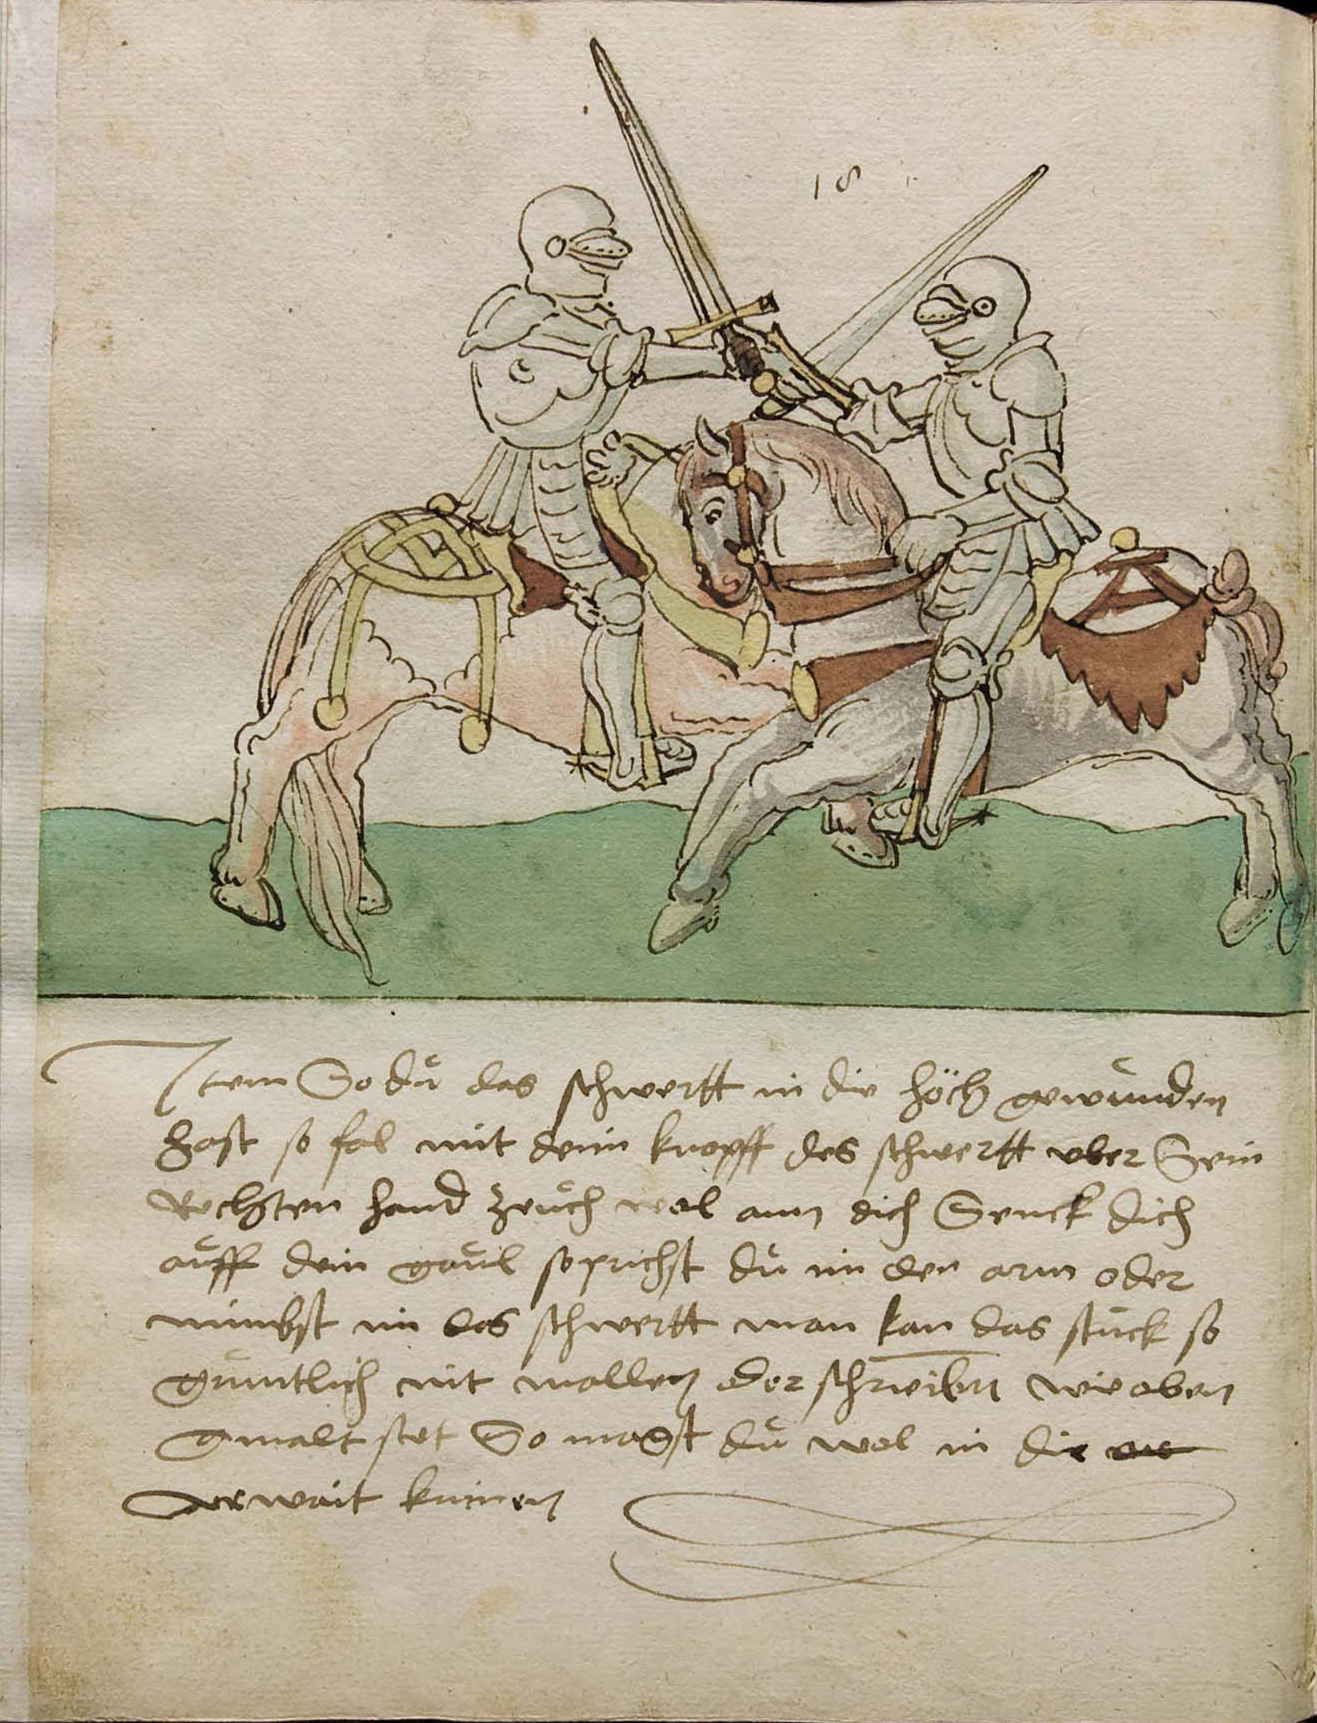 18
Item So du̇ das schwertt in die höch gewunden
hast so fal mit dein knopff des schwertt uber Sein
Rechten hand zeuch wol ann dich Senck dich
auff dein gaul so prichst du im den arm oder
nimbst im das schwertt man kan das stuck so
gruntlich nit mallen oder schreiben wie oben
gmalt stet So magst du wol in die
arwait kumen